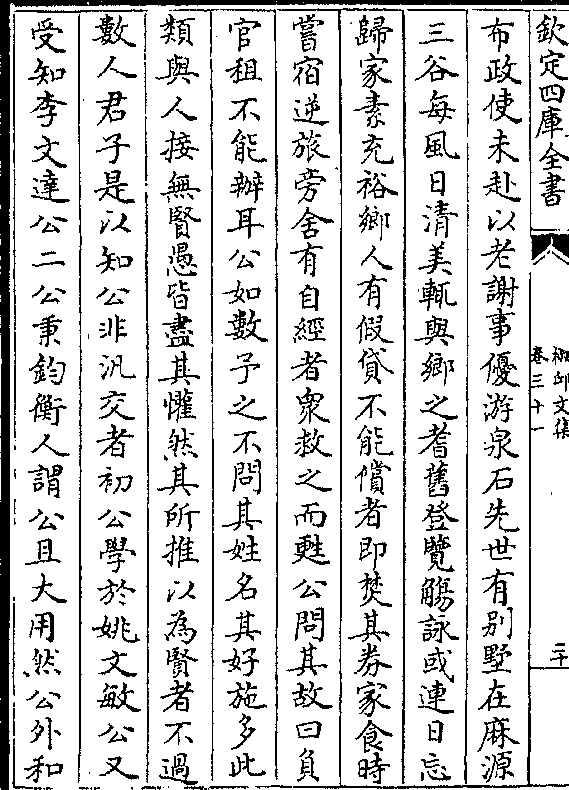 欽定四庫全書
椒邱文集
卷三十一
二十
布政使未赴以老謝事優游泉石先世有别墅在麻源
三谷每風日清美輒與鄉之耆舊登覽觴詠或連日忘
歸家素充裕鄉人有假貸不能償者即焚其券家食時
嘗宿逆旅旁舍有自經者衆救之而甦公問其故曰負
官租不能辦耳公如數予之不問其姓名其好施多此
類與人接無賢愚皆盡其懽然其所推以為賢者不過
數人君子是以知公非汎交者初公學於姚文敏公又
受知李文達公二公秉鈞衡人謂公且大用然公外和